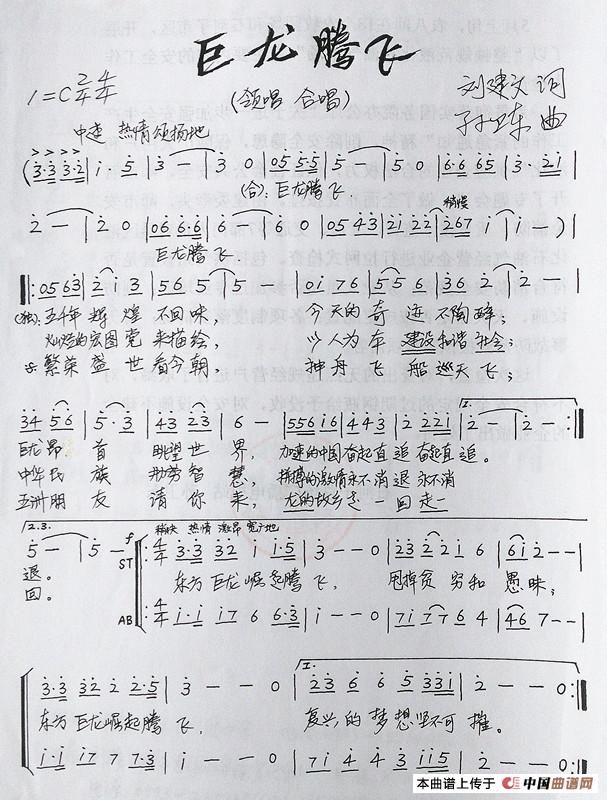 巨龙腾飞
1=C 2/4 4/4
(领唱 合唱)
刘建文 词
孙卫东 曲
中速 热情颂扬地
(3·3 3·2 | 1· 5 | 3 — | 3 0 | 05 5·5 | 5 — | 5 0 | 6·6 65 | 3· 21 |
(合):巨龙腾飞.
稍慢
2 — | 2 0 | 06 6·6 | 6 — | 6 0 | 05 43 | 21 22 | 267 1 | 1 — ) |
巨龙腾飞
‖: 05 63 | 2 1 3 | 56 5 | 5 — | 01 76 | 5 5 6 | 36 2 | 2 — |
(独):五千年 辉 煌 不回味, 今天的奇 迹 不陶醉;
灿烂的宏图 党 来描绘, 以人为本 建设和谐社会;
繁荣 盛 世 看今朝, 神舟飞 船 巡天飞;
1.
34 56 | 5· 3 | 43 23 | 6 — | 555 61 6 | 4 4 3 | 2 221 | 2 — | 2 — :‖
巨龙昂 首 眺望世 界, 加速的中国奋起直追 奋起直 追。
中华民 族 勤劳智 慧, 拼搏的激情永不消退 永不消
亚洲朋 友 请你 来, 龙的故乡走 一回 走一
2.3.
稍快 热情 激昂 宽广地
5 — | 5 — f ST ‖: 4/4 3·3 32 1 1·5 | 3 — — 0 | 23 2 21 6 | 61 2 — — |
退。 东方巨龙崛起腾 飞, 甩掉贫 穷和 愚昧;
回。
AB 4/4 1·1 17 6 6·3 | 1 — — 0 | 71 7 76 4 | 46 7 — — |
1.
3·3 32 2 2·5 | 3 — — 0 | 23 6 6 5 331 | 2 — — 0 :‖
东方巨龙崛起腾 飞, 复兴的 梦想坚不可 摧。
1·1 17 7 7·3 | 1 — — 0 | 71 4 4 3 115 | 2 — — 0 :‖
本曲谱上传于 中国曲谱网